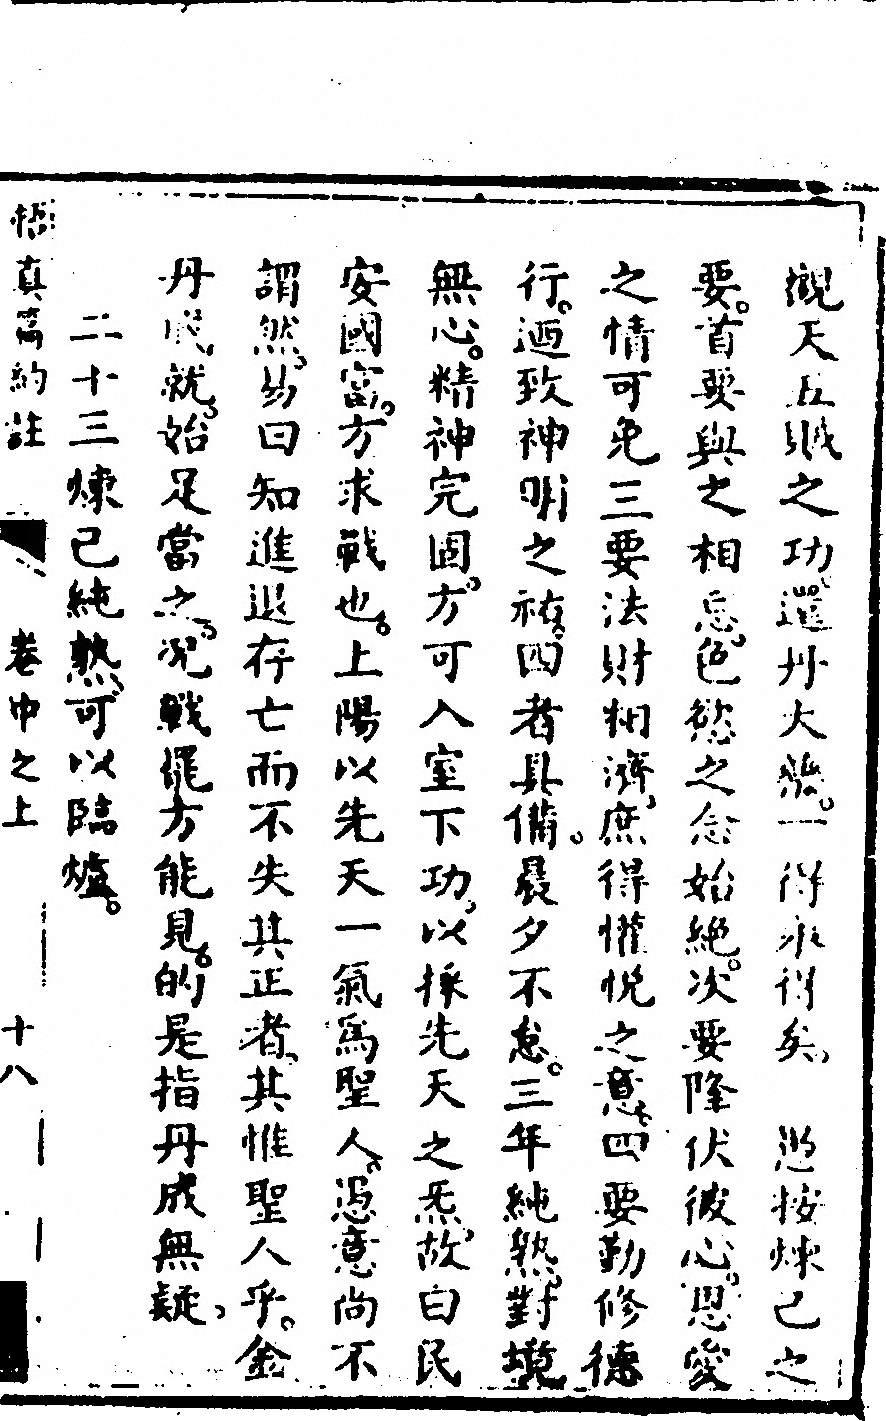 觀天五賊之功、還丹大藥。一得永得矣、　愚按煉己之
要。首要與之相忘。色慾之念始絶。次要降伏彼心。恩愛
之情可免三要法財相濟、庶得懽悅之意。四要勤修德
行。迺致神明之祐。四者具備。晨夕不怠。三年純熟。對境
無心。精神完固。方可入室下功。以採先天之炁。故曰民
安國富。方求戰也。上陽以先天一氣爲聖人。愚意尚不
謂然。易曰知進退存亡而不失其正者、其惟聖人乎。金
丹成就。始足當之。况戰罷方能見。的是指丹成無疑、
二十三煉己純熟、可以臨爐。
悟真篇約註　卷中之上　十八